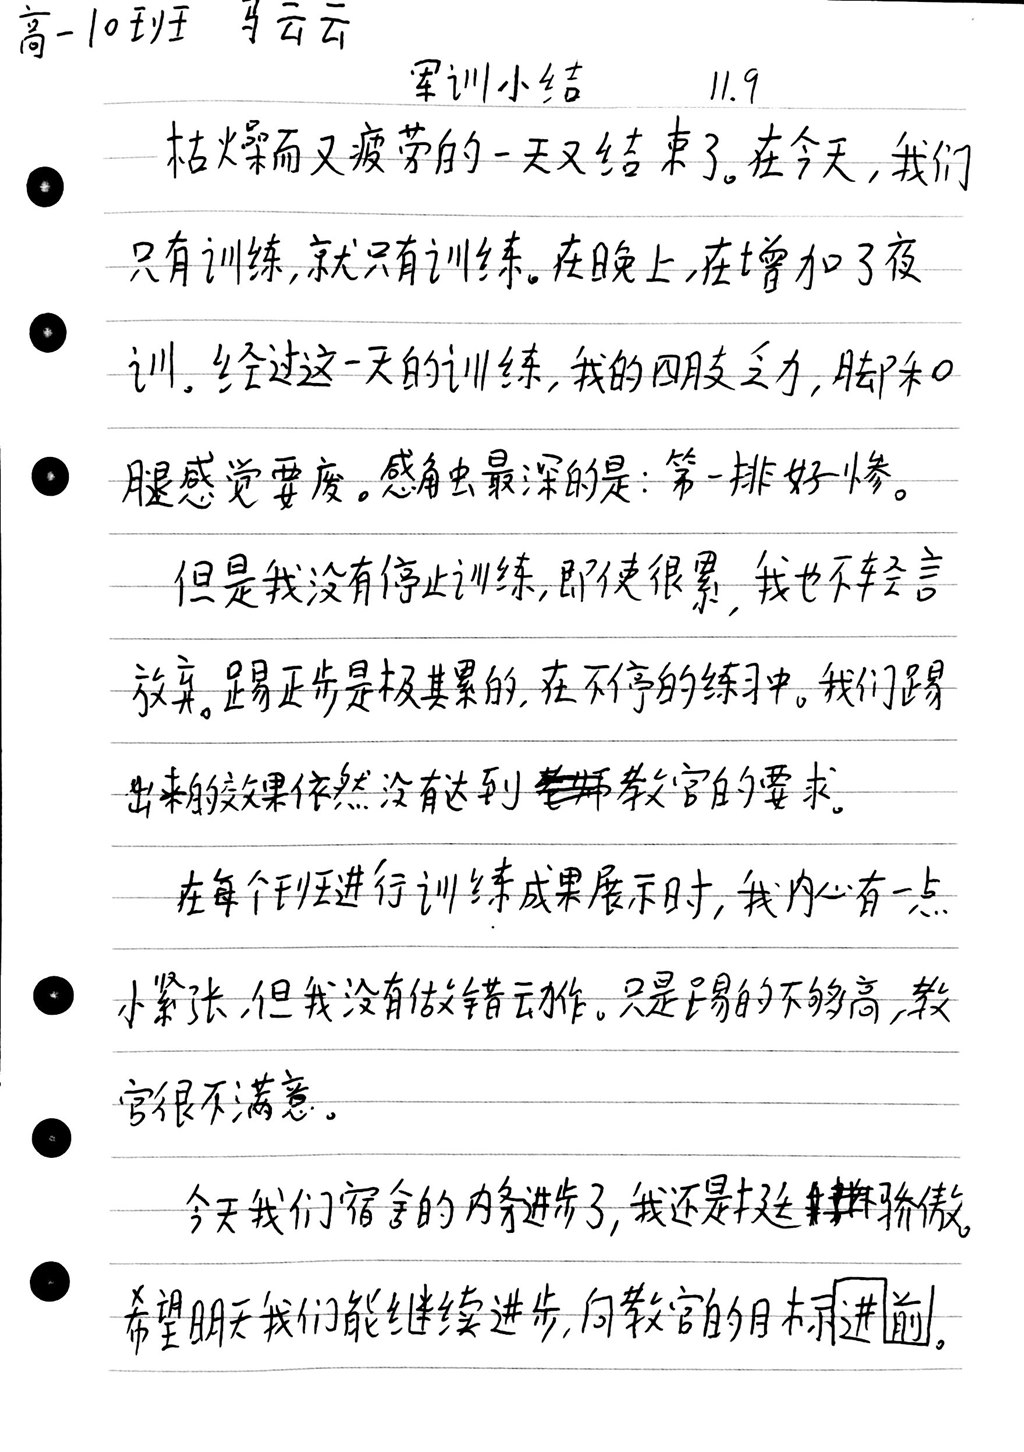 高一10班 马云云
军训小结 11.9
枯燥而又疲劳的一天又结束了。在今天,我们
只有训练,就只有训练。在晚上,在增加了夜
训。经过这一天的训练,我的四肢乏力,脚和
腿感觉要废。感触最深的是:第一排好惨。
但是我没有停止训练,即使很累,我也不轻言
放弃。踢正步是极其累的,在不停的练习中。我们踢
出来的效果依然没有达到教官的要求。
在每个班进行训练成果展示时,我内心有一点
小紧张,但我没有做错动作。只是踢的不够高,教
官很不满意。
今天我们宿舍的内务进步了,我还是挺骄傲。
希望明天我们能继续进步,向教官的目标进前。